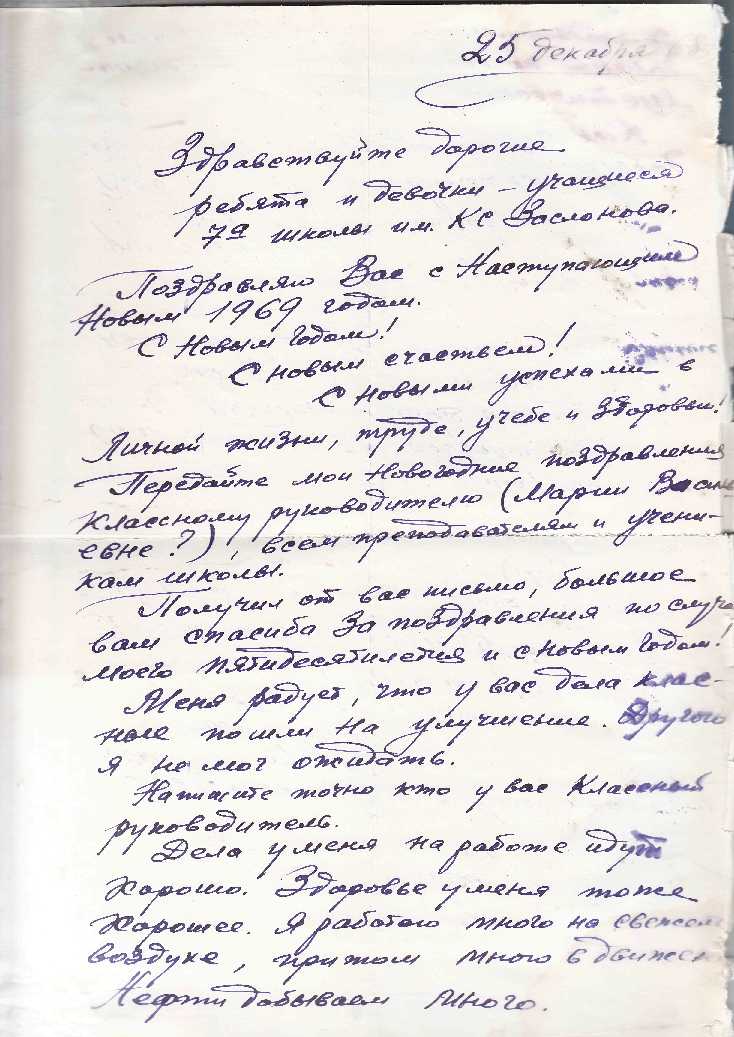 25 декабря
Здравствуйте дорогие
ребята и девочки – учащиеся
7а школы им. КС Заслонова.
Поздравляю Вас с Наступающим
Новым 1969 годом.
С Новым Годом!
С новым счастьем!
С новыми успехами в
Личной жизни, труде, учебе и здоровьи!
Передайте мои Новогодние поздравления
Классному руководителю (Марии Васил
евне?), всем преподавателям и учени-
кам школы.
Получил от вас письмо, большое
вам спасиба за поздравления по случа
моего пятидесятилетия и с новым годом!
Меня радует, что у вас дела клас-
ные пошли на улучшение. Другого
я не мог ожидать.
Напишите точно кто у вас Классный
руководитель.
Дела у меня на работе идут
хорошо. Здоровье у меня тоже
хорошее. Я работаю много на свежем
воздухе, притом много в движен
Нефти добываем много.